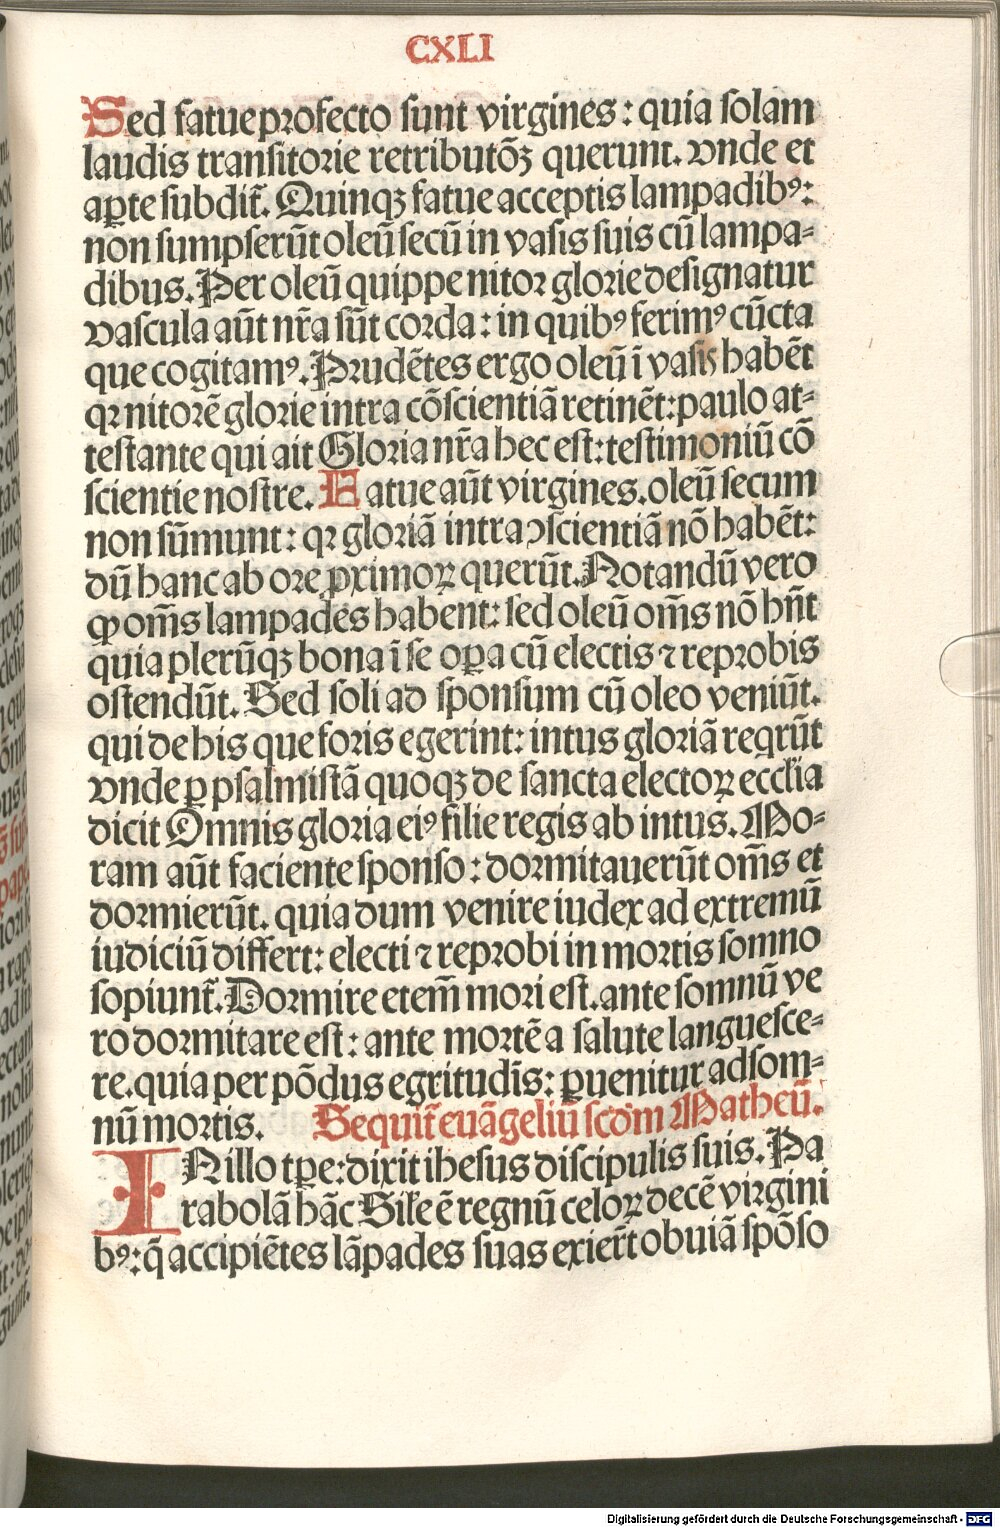 CXLI
Sed fatue profecto sunt virgines: quia solam
laudis transitorie retributōꝫ querunt. vnde et
aꝑte subdit̃. Quinqꝫ fatue acceptis lampadibꝰ:
non sumpserūt oleū secū in vasis suis cū lampa⸗
dibus. Per oleū quippe nitor glorie designatur
vascula aūt nr̄a sūt corda: in quibꝰ ferimꝰ cūcta
que cogitamꝰ. Prudētes ergo oleū ī vasis habēt
qꝛ nitorē glorie intra cōscientiā retinēt: paulo at⸗
testante qui ait Gloria nr̄a hec est: testimoniū cō
scientie nostre. Fatue aūt virgines. oleū secum
non sūmunt: qꝛ gloriā intra ↄscientiā nō habēt:
dū hanc ab ore ꝓximoꝝ querūt. Notandū vero
ꝙ om̄s lampades habent: sed oleū om̄s nō hn̄t
quia plerūqꝫ bona ī se oꝑa cū electis ⁊ reprobis
ostendūt. Sed soli ad sponsum cū oleo veniūt.
qui de his que foris egerint: intus gloriā reqrūt
vnde ꝑ psalmistā quoqꝫ de sancta electoꝝ eccl̄ia
dicit Omnis gloria eiꝰ filie regis ab intus. Mo⸗
ram aūt faciente sponso: dormitauerūt om̄s et
dormierūt. quia dum venire iudex ad extremū
iudiciū differt: electi ⁊ reprobi in mortis somno
sopiunt̃. Dormire etem̄ mori est. ante somnū ve
ro dormitare est: ante mortē a salute languesce⸗
re. quia per pōdus egritudīs: ꝑuenitur ad som⸗
nū mortis. Sequit̃ euāgeliū scd̄m Matheū.
IN illo tꝑe: dixit ihesus discipulis suis. Pa
rabolā hāc Sil̄e ē regnū celoꝝ decē virgini
bꝰ: q̄ accipiētes lāpades suas exier̄t obuiā spōso
Digitalisierung gefördert durch die Deutsche Forschungsgemeinschaft - DFG